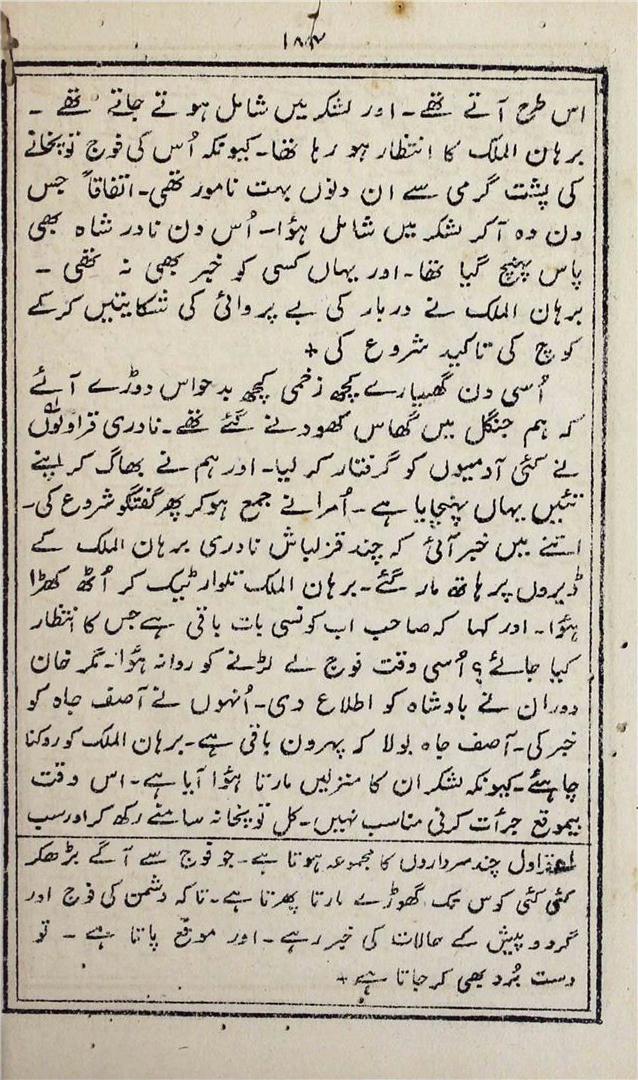 ۱۸۷
اس طرح آتے تھے۔ اور لشکر میں شامل ہوتے جاتے تھے ۔
برہان الملک کا انتظار ہو رہا تھا۔ کیونکہ اُس کی فوج توپخانے
کی پشت گرمی سے ان دنوں بہت نامور تھی۔ اتفاقاً جس
دن وہ آکر لشکر میں شامل ہؤا۔ اُس دن نادر شاہ بھی
پاس پہنچ گیا تھا۔ اور یہاں کسی کو خبر بھی نہ تھی ۔
برہان الملک نے دربار کی بے پروائی کی شکایتیں کرکے
کوچ کی تاکید شروع کی +
اُسی دن گھسیارے کچھ زخمی کچھ بدحواس دوڑے آئے
کہ ہم جنگل میں گھاس کھودنے گئے تھے۔ نادری قراولوں
نے کئی آدمیوں کو گرفتار کر لیا۔ اور ہم نے بھاگ کر اپنے
تئیں یہاں پہنچایا ہے۔ اُمرانے جمع ہوکر پھر گفتگو شروع کی۔
اتنے میں خبر آئی کہ چند قزلباش نادری برہان الملک کے
ڈیروں پر ہاتھ مار گئے۔ برہان الملک تلوار ٹیک کر اُٹھ کھڑا
ہؤا۔ اور کہا کہ صاحب اب کونسی بات باقی ہے جس کا انتظار
کیا جائے؟ اُسی وقت فوج لے لڑنے کو روانہ ہؤا۔ مگر خان
دوران نے بادشاہ کو اطلاع دی۔ اُنہوں نے آصف جاہ کو
خبر کی۔ آصف جاہ بولا کہ پہردن باقی ہے۔ برہان الملک کو روکنا
چاہئے۔ کیونکہ لشکر ان کا منزلیں مارتا ہؤا آیا ہے۔ اس وقت
بیموقع جرأت کرنی مناسب نہیں۔ کل توپخانہ سامنے رکھ کر اور سب
قراول چند سرداروں کا مجموعہ ہوتا ہے۔ جو فوج سے آگے بڑھکر
کئی کئی کوس تک گھوڑے مارتا پھرتا ہے۔ تاکہ دشمن کی فوج اور
گرد و پیش کے حالات کی خبر رہے۔ اور موقع پاتا ہے ۔ تو
دست بُرد بھی کر جاتا ہے +